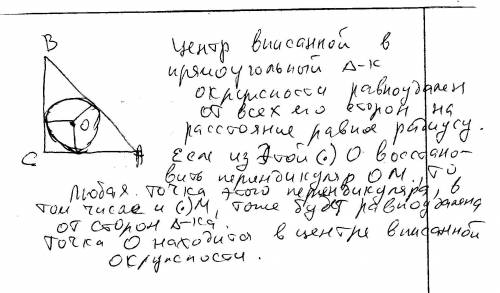 B
Центр вписанной в
прямоугольный Δ-к
окружности равноудален
O
от всех его сторон на
расстояние равное радиусу.
C
A
Если из этой (•) О восстано-
вить перпендикуляр ОМ, то
любая точка этого перпендикуляра, в
том числе и (•) М, тоже будет равноудалена
от сторон Δ-ка.
Точка О находится в центре вписанной
окружности.